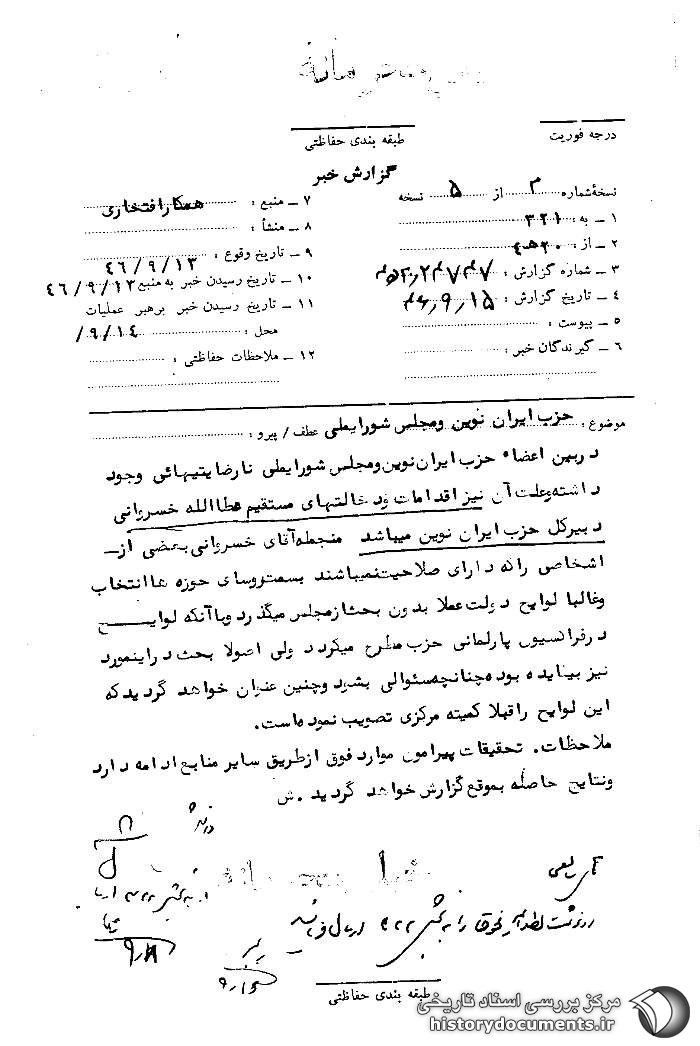 درجه فوریت
طبقه بندی حفاظتی
گزارش خبر
نسخهٔ شماره ۳ از ۵ نسخه
۱ ــ به : ۳۲۱
۲ ــ از : ۲۰ ه‍ ۴
۳ ــ شماره گزارش :
۴ ــ تاریخ گزارش : ۴۶٫۹٫۱۵
۵ ــ پیوست :
۶ ــ گیرندگان خبر :
۷ ــ منبع : همکار افتخاری
۸ ــ منشأ :
۹ ــ تاریخ وقوع : ۴۶/۹/۱۳
۱۰ ــ تاریخ رسیدن خبر به منبع ۴۶/۹/۱۳
۱۱ ــ تاریخ رسیدن خبر برهبر عملیات
محل : ۹/۱۴/
۱۲ ــ ملاحظات حفاظتی :
موضوع : حزب ایران نوین ومجلس شورایملی عطف / پیرو :
دربین اعضاء حزب ایران نوین ومجلس شورایملی نارضایتیهائی وجود
داشته وعلت آن نیز اقدامات ودخالتهای مستقیم عطاالله خسروانی
دبیرکل حزب ایران نوین میباشد منجمله آقای خسروانی بعضی از
اشخاص راکه دارای صلاحیت نمیباشند بسمت روسای حوزه ها انتخاب
وغالبا لوایح دولت عملا بدون بحث از مجلس میگذرد وبا آنکه لوایح
درفراکسیون پارلمانی حزب مطرح میگردد ولی اصولا بحث دراینمورد
نیز بیفایده بوده چنانچه سئوالی بشود وچنین عنوان خواهد گردید که
این لوایح راقبلا کمیته مرکزی تصویب نموده است.
ملاحظات. تحقیقات پیرامون موارد فوق ازطریق سایر منابع ادامه دارد
ونتایج حاصله بموقع گزارش خواهد گردید.ش
طبقه بندی حفاظتی
مرکز بررسی اسناد تاریخی
historydocuments.ir